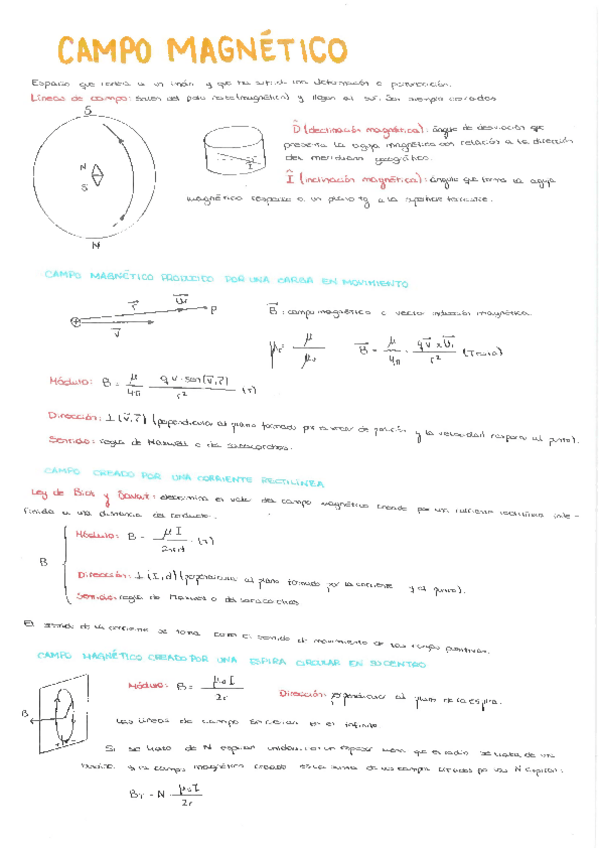 CAMPO MAGNÉTICO
Espacio que rodea a un imán y que ha sufrido una deformación o perturbación.
Líneas de campo: salen del polo norte (magnético) y llegan al sur. Son siempre cerradas
S
N
S
N
D̂ (declinación magnética): ángulo de desviación que
presenta la aguja magnética con relación a la dirección
del meridiano geográfico.
Î (inclinación magnética): ángulo que forma la aguja
magnética respecto a un plano tg a la superficie terrestre.
CAMPO MAGNÉTICO PRODUCIDO POR UNA CARGA EN MOVIMIENTO
r⃗ u⃗r P
+ v⃗
B⃗: campo magnético o vector inducción magnética.
B⃗ = μ/4π · q v⃗ x u⃗r / r² (Tesla)
Módulo: B = μ/4π · q v · sen(v⃗, r⃗) / r² (T)
Dirección: ⊥ (v⃗, r⃗) (perpendicular al plano formado por el vector de posición y la velocidad respecto al punto).
Sentido: regla de Maxwell o de sacacorchos.
CAMPO CREADO POR UNA CORRIENTE RECTILÍNEA
Ley de Biot y Savart: determina el valor del campo magnético creado por una corriente rectilínea inde-
finida a una distancia del conductor.
B
Módulo: B = μ I / (T)
Dirección: ⊥ (I, d) (perpendicular al plano formado por la corriente y el punto).
Sentido: regla de Maxwell o del sacacorchos
El sentido de la corriente se toma como el sentido de movimiento de las cargas positivas.
CAMPO MAGNÉTICO CREADO POR UNA ESPIRA CIRCULAR EN SU CENTRO
B
Módulo: B = μ₀ I / 2r Dirección: perpendicular al plano de la espira.
Las líneas de campo se cierran en el infinito
Si se trata de N espiras unidas, con un espesor menor que el radio se trata de una
y su campo magnético creado es la suma de los campos creados por las N espiras:
B_T = N · μ₀ I / 2r